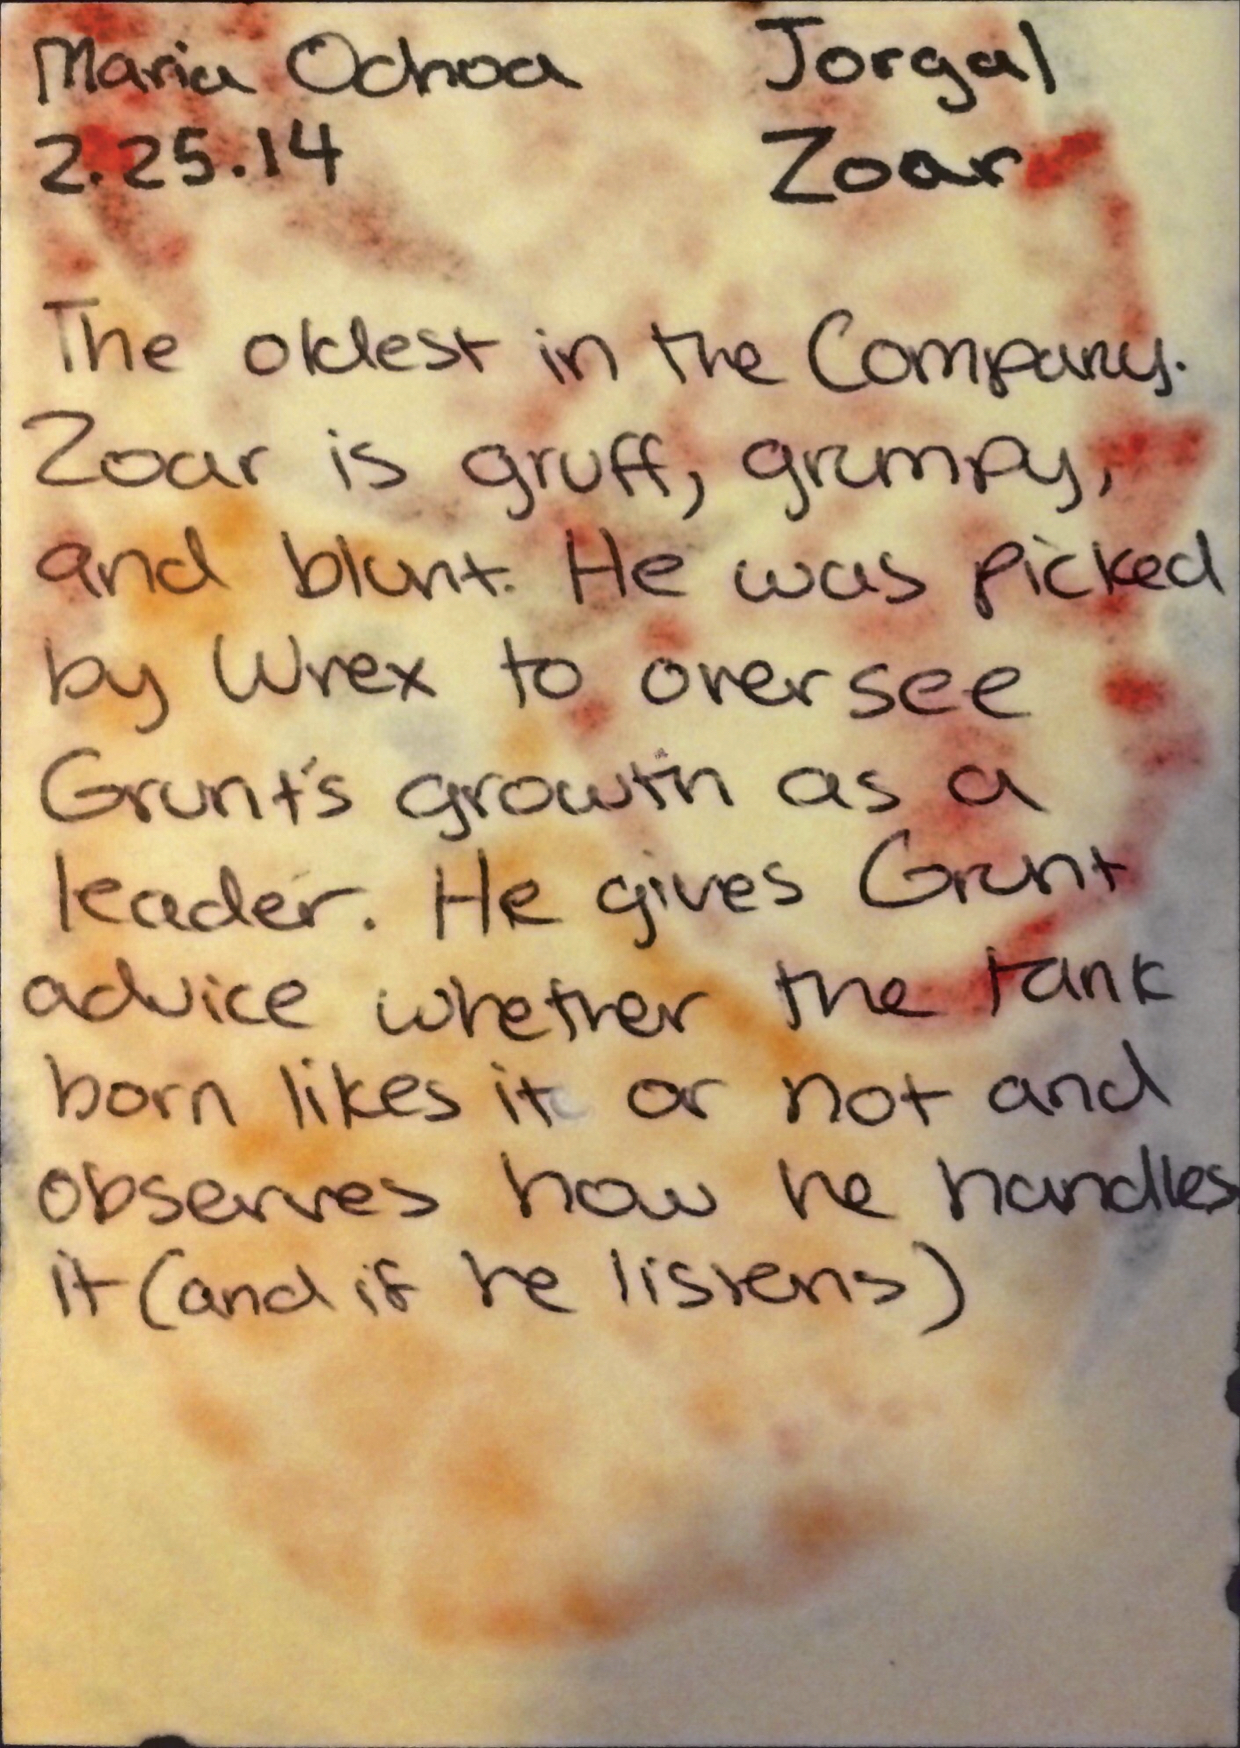 Maria Ochoa Jorgal
2.25.14 Zoar
The oldest in the Company.
Zoar is gruff, grumpy,
and blunt. He was picked
by Wrex to oversee
Grunt's growth as a
leader. He gives Grunt
advice whether the tank
born likes it or not and
observes how he handles
it (and if he listens)